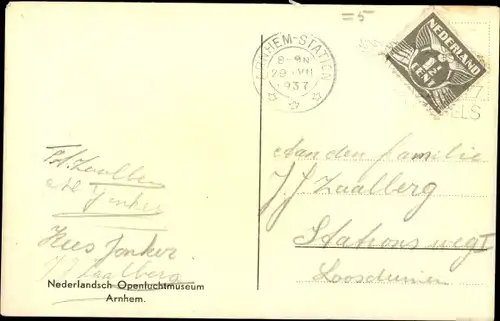 =5
ARNHEM-STATION
8-9N
20 VII
1937
NEDERLAND
CENT
Aan den familie
J. J. Zaalberg
Stationsweg
Loosduinen
Jonker
Kees Jonker
J. J. Zaalberg
Nederlandsch Openluchtmuseum
Arnhem.